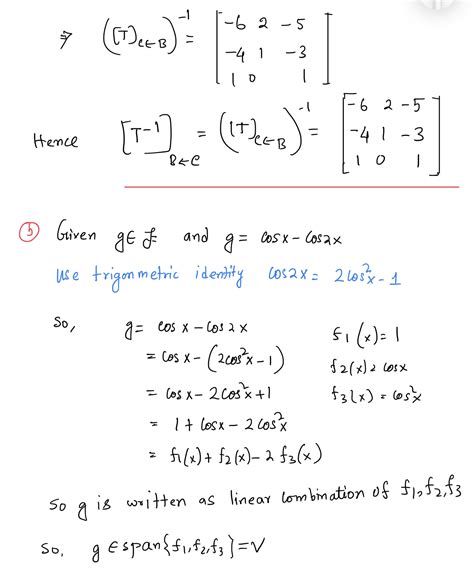 ⇒ ([T]_{C←B})^{-1} = [-6 2 -5
-4 1 -3
1 0 1]
Hence [T^{-1}]_{B←C} = ([T]_{C←B})^{-1} = [-6 2 -5
-4 1 -3
1 0 1]
b Given g∈ and g = cosx - cos2x
Use trigonmetric identity cos2x = 2cos²x - 1
So, g = cosx - cos2x f1(x) = 1
= cosx - (2cos²x - 1) f2(x) = cosx
= cosx - 2cos²x + 1 f3(x) = cos²x
= 1 + cosx - 2cos²x
= f1(x) + f2(x) - 2 f3(x)
So g is written as linear combination of f1, f2, f3
So, g ∈ span{f1, f2, f3} = V